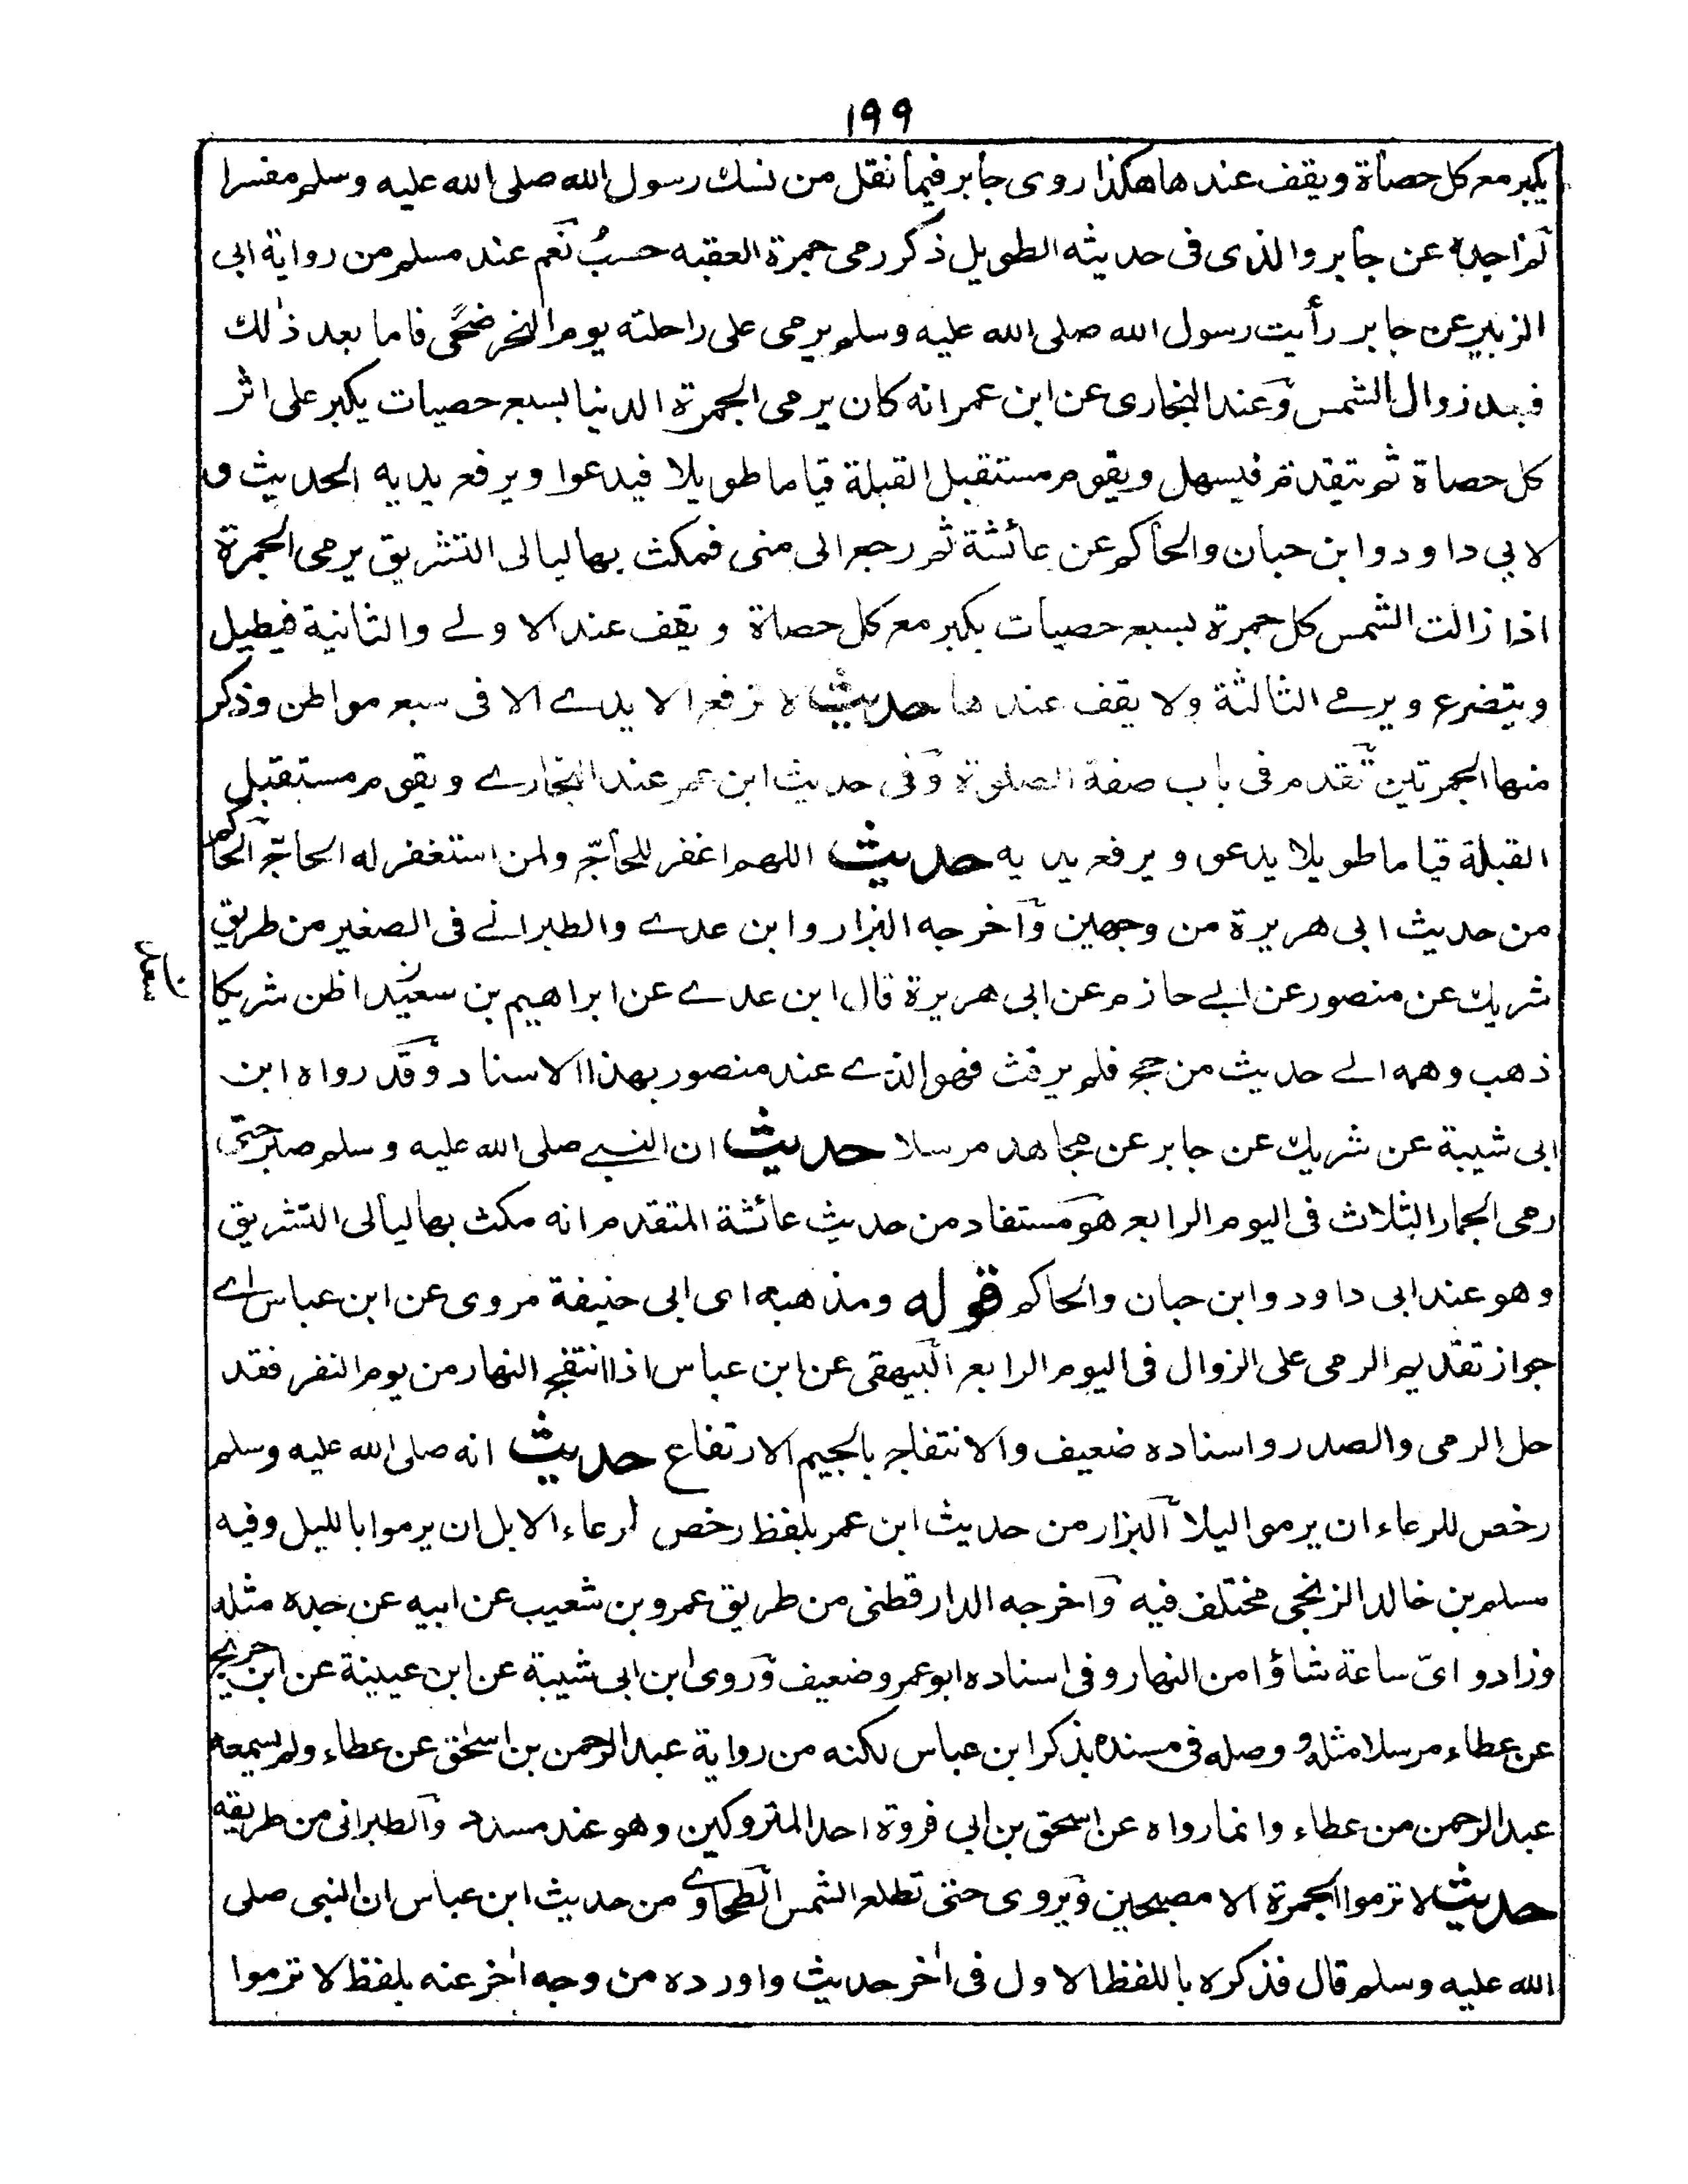 ١٩٩
يكبر مع كل حصاة ويقف عندها هكذا روى جابر فيما نقل من نسك رسول الله صلى الله عليه وسلم مفسرا
لم اجده عن جابر والذى فى حديثه الطويل ذكر رمى جمرة العقبه حسبُ نعم عند مسلم من رواية ابى
الزبير عن جابر رأيت رسول الله صلى الله عليه وسلم يرمى على راحلته يوم النحر ضحًى فاما بعد ذٰلك
فبعد زوال الشمس وعند البخارى عن ابن عمر انه كان يرمى الجمرة الدنيا بسبع حصيات يكبر على اثر
كل حصاة ثم يتقدم فيسهل ويقوم مستقبل القبلة قياما طويلا فيدعوا ويرفع يديه الحديث و
لابي داود وابن حبان والحاكم عن عائشة ثم رجع الى منى فمكث بها ليالى التشريق يرمى الجمرة
اذا زالت الشمس كل جمرة بسبع حصيات يكبر مع كل حصاة ويقف عند الاولے والثانية فيطيل
ويتضرع ويرمے الثالثة ولا يقف عندها حديث لا ترفع الايدے الا فى سبع مواطن وذكر
منها الجمرتين تقدم فى باب صفة الصلوة وفى حديث ابن عمر عند البخارے ويقوم مستقبل
القبلة قياما طويلا يدعو ويرفع يديه حديث اللهم اغفر للحاجّ ولمن استغفر له الحاجّ الحاكم
من حديث ابى هريرة من وجهين واخرجه البزار وابن عدے والطبرانے فى الصغير من طريق
شريك عن منصور عن ابے حازم عن ابى هريرة قال ابن عدے عن ابراهيم بن سعيد اظن شريكا
ذهب وهمه الے حديث من حج فلم يرفث فهو الذے عند منصور بهذا الاسناد وقد رواه ابن
ابى شيبة عن شريك عن جابر عن مجاهد مرسلا حديث ان النبے صلى الله عليه وسلم صبر حتى
رمى الجمار الثلاث فى اليوم الرابع هو مستفاد من حديث عائشة المتقدم انه مكث بها ليالى التشريق
وهو عند ابى داود وابن حبان والحاكم قوله ومذهبه اى ابى حنيفة مروى عن ابن عباس اے
جواز تقديم الرمى على الزوال فى اليوم الرابع البيهقى عن ابن عباس اذا انتفج النهار من يوم النفر فقد
حل الرمى والصدر واسناده ضعيف والانتفاج بالجيم الارتفاع حديث انه صلى الله عليه وسلم
رخص للرعاء ان يرموا ليلا البزار من حديث ابن عمر بلفظ رخص لرعاء الابل ان يرموا بالليل وفيه
مسلم بن خالد الزنجى مختلف فيه واخرجه الدارقطنى من طريق عمرو بن شعيب عن ابيه عن جده مثله
وزاد واىّ ساعة شاؤا من النهار وفى اسناده ابو عمرو ضعيف وروى ابن ابى شيبة عن ابن عيينة عن ابن جريج
عن عطاء مرسلا مثله ووصله فى مسنده بذكر ابن عباس لكنه من رواية عبد الرحمن بن اسحٰق عن عطاء ولم يسمعه
عبد الرحمن من عطاء وانما رواه عن اسحق بن ابى فروة احد المتروكين وهو عند مسدد والطبرانى من طريقه
حديث لا ترموا الجمرة الا مصبحين ويروى حتى تطلع الشمس الطحاوے من حديث ابن عباس ان النبى صلى
الله عليه وسلم قال فذكره باللفظ الاول فى اٰخر حديث واورده من وجه اٰخر عنه بلفظ لا ترموا